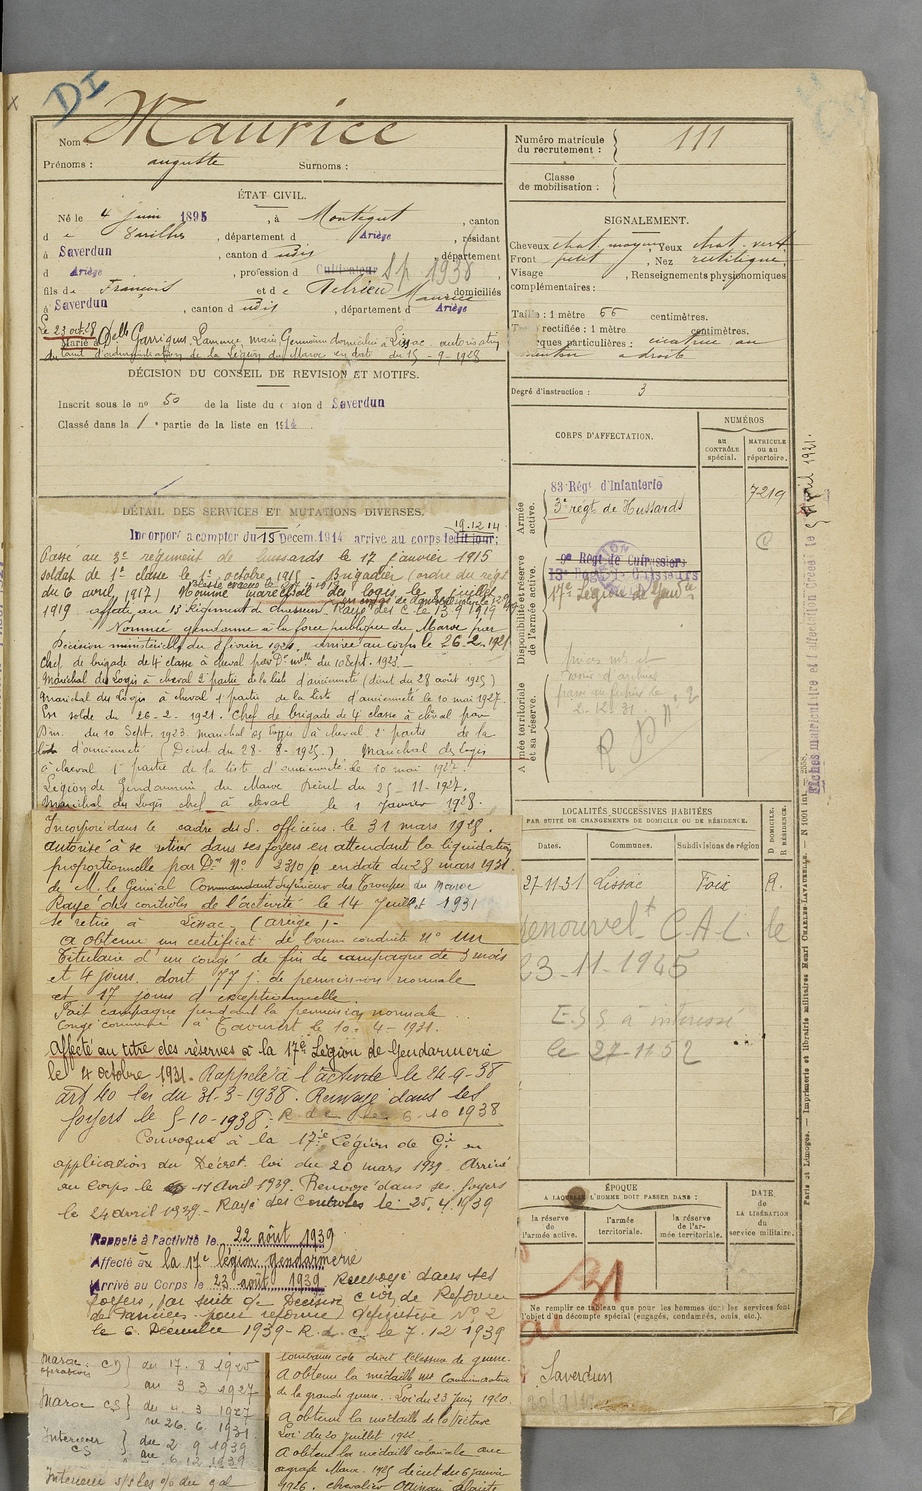 DI
Nom Maurice
Prénoms : auguste Surnoms :
Numéro matricule du recrutement : 111
Classe de mobilisation :
ÉTAT CIVIL.
Né le 4 juin 1895, à Montégut, canton
d e Varilhes, département d Ariège, résidant
à Saverdun, canton d udis, département
d Ariège, profession d Cultivateur S.p 1938
fils de François et de Adrien Maurice domiciliés
à Saverdun, canton d udis, département d Ariège
Le 23 oct. 28
Marié à Delle Garrigues, Laurence, Marie Germaine domiciliée à Lissac. autorisation
du Conseil d'administration de la Légion du Maroc en date du 15-9-1928
SIGNALEMENT.
Cheveux chat. moyen Yeux chat. vert
Front petit, Nez rectiligne
Visage, Renseignements physionomiques
complémentaires :
Taille : 1 mètre 66 centimètres.
rectifiée : 1 mètre centimètres.
rques particulières : cicatrice au
menton à droite
Degré d'instruction : 3
DÉCISION DU CONSEIL DE REVISION ET MOTIFS.
Inscrit sous le no 50 de la liste du canton d Saverdun
Classé dans la 1e partie de la liste en 1914
CORPS D'AFFECTATION.
NUMÉROS
au CONTRÔLE spécial.
MATRICULE ou au répertoire.
Armée active.
83 Régt d'Infanterie
3e régt de Hussards
7219
Disponibilité et réserve de l'armée active.
9e Régt de Cuirassiers
17e Légion de Gendie
Armée territoriale et sa réserve.
2-12-31
R P n° 2
DÉTAIL DES SERVICES ET MUTATIONS DIVERSES.
Incorporé à compter du 15 Décem. 1914 arrivé au corps le 19.12.14
Passé au 3e régiment de hussards le 17 janvier 1915
soldat de 1e classe le 1er octobre 1915 - Brigadier (ordre du régt
du 6 avril 1917) Nommé maréchal des logis le 8 juillet
1919 affecté au 13 Régiment de chasseurs. Rayé des C. le 13 9 1919
Nommé gendarme à la force publique du Maroc par
Décision ministérielle du 2 février 1921. Arrivé au corps le 26.2.1921
Chef de brigade de 4e classe à cheval par Don mlle du 10 Sept. 1923
Maréchal des Logis à cheval 2e partie de la liste d'ancienneté (décret du 28 août 1925)
Maréchal des Logis à cheval 1e partie de la liste d'ancienneté le 10 mai 1927.
En solde du 26-2-1921. Chef de brigade de 4e classe à cheval par
Dm. du 10 Sept. 1923 Maréchal des logis à cheval 2e partie de la
liste d'ancienneté (Décret du 28-8-1925.) Maréchal des Logis
à cheval 1e partie de la liste d'ancienneté le 10 mai 1927.
Légion de Gendarmerie du Maroc Décret du 25-11-1927.
Maréchal des logis chef à cheval le 1 Janvier 1928.
Incorporé dans le cadre des S. officiers le 31 mars 1928.
autorisé à se retirer dans ses foyers en attendant la liquidation
proportionnelle par Dn N° 2310/p en date du 28 mars 1931
de M. le Général Commandant Supérieur des Troupes du Maroc
Rayé des contrôles de l'activité le 14 Juillet 1931
Se retire à Lissac (Ariège) -
a obtenu un certificat de bonne conduite N° un
Titulaire d'un congé de fin de campagne de 3 mois
et 4 jours dont 77 j. de permission normale
et 17 jours d'exceptionnelle.
Fait campagne pendant la permission normale
Congé commencé à Taourirt le 10-4-1931.
Affecté au titre des réserves à la 17e Légion de Gendarmerie
le 4 octobre 1931. Rappelé à l'activité le 24-9-38
art 40 loi du 31-3-1928. Renvoyé dans ses
foyers le 5-10-1938. R d C le 6-10 1938
Convoqué à la 17e Légion de Gie en
application du Décret loi du 20 mars 1939. Arrivé
au corps le 17 Avril 1939. Renvoyé dans ses foyers
le 24 avril 1939. - Rayé des Controles le 25.4.1939
Rappelé à l'activité le 22 août 1939
Affecté au la 17e légion gendarmerie
Arrivé au Corps le 23 août 1939 Renvoyé dans ses
foyers, par suite de Décision con de Réforme
de Pamiers pour réforme définitive N° 2
le 6 Décembre 1939 - R. d. c. le 7.12 1939
LOCALITÉS SUCCESSIVES HABITÉES
PAR SUITE DE CHANGEMENTS DE DOMICILE OU DE RÉSIDENCE.
Dates. Communes. Subdivisions de région D. DOMICILE. R. RÉSIDENCE.
27-11-31 Lissac Foix R.
renouvelt C.A.L. le
23-11-1945
E.S.S à intéressé
le 27-11 52
ÉPOQUE
A LAQUELLE L'HOMME DOIT PASSER DANS :
la réserve de l'armée active.
l'armée territoriale.
la réserve de l'armée territoriale.
DATE de LA LIBÉRATION du service militaire.
31
Ne remplir ce tableau que pour les hommes dont les services font
l'objet d'un décompte spécial (engagés, condamnés, omis, etc.).
Saverdun
Fiches matriculaire et d'affectation créées le 5 Avril 1931.
Paris et Limoges. — Imprimerie et librairie militaires Henri CHARLES-LAVAUZELLE. — N 1001 int.
Maroc CD du 17.8 1925
opérations au 3 3 1927
Maroc CS du 4.3 1927
au 26.6 1931
Intérieur CS du 2 9 1939
au 6 12 1939
Intérieur
A obtenu la médaille Commémorative
de la grande guerre. Loi du 23 Juin 1920.
A obtenu la médaille de la Victoire
Loi du 20 juillet 1922
A obtenu la médaille coloniale avec
agrafe Maroc 1925 décret du 6 janvier
1926. Chevalier Ouissam Alaouite